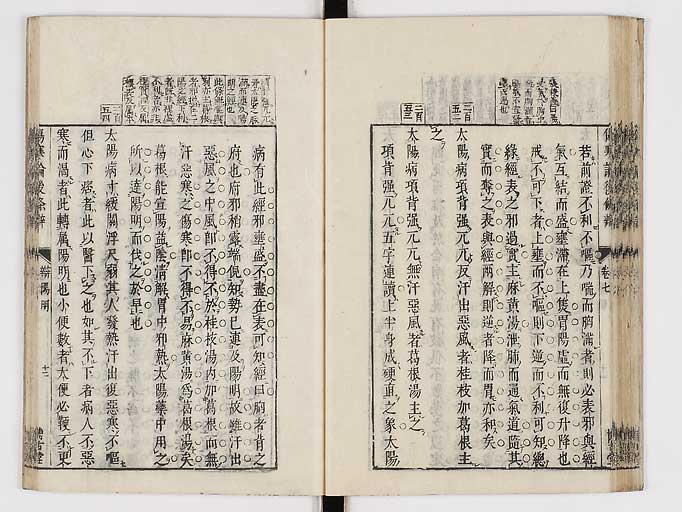 若前證不利不嘔乃喘而胸滿者則必表邪與經
氣互結而盛壅滿在上隻胃陽虛而無復升降也
戒不可下者上壅而不嘔則下逆而不利可知總
緣經表之邪過實主麻黃湯泄肺而通氣道隨其
實而奪之表與經兩解則逆者降而胃亦和矣
三百五二
太陽病項背强几几反汗出惡風者桂枝加葛根主
之
三百五三
太陽病項背强几几無汗惡風者葛根湯主之
項背强几几五字連讀上半身成硬直之象太陽
病有此經邪壅盛不盡在表可知經曰胸者背之
府也府邪稍露端倪知勢已連及陽明故雖汗出
惡風之中風卽不得不於桂枝湯內加葛根而無
汗惡寒之傷寒卽不得不易麻黃湯爲葛根湯矣
葛根能宣陽益陰清解胃中邪熱太陽藥中用之
所以達陽明而伐之於早也
三百五四
太陽病寸緩關浮尺弱其人發熱汗出復惡寒不嘔
但心下痞者此以醫下之也如其不下者病人不惡
寒而渴者此轉屬陽明也小便數者大便必鞕不更
傷寒論後條辨
辨陽明
十二
卷七